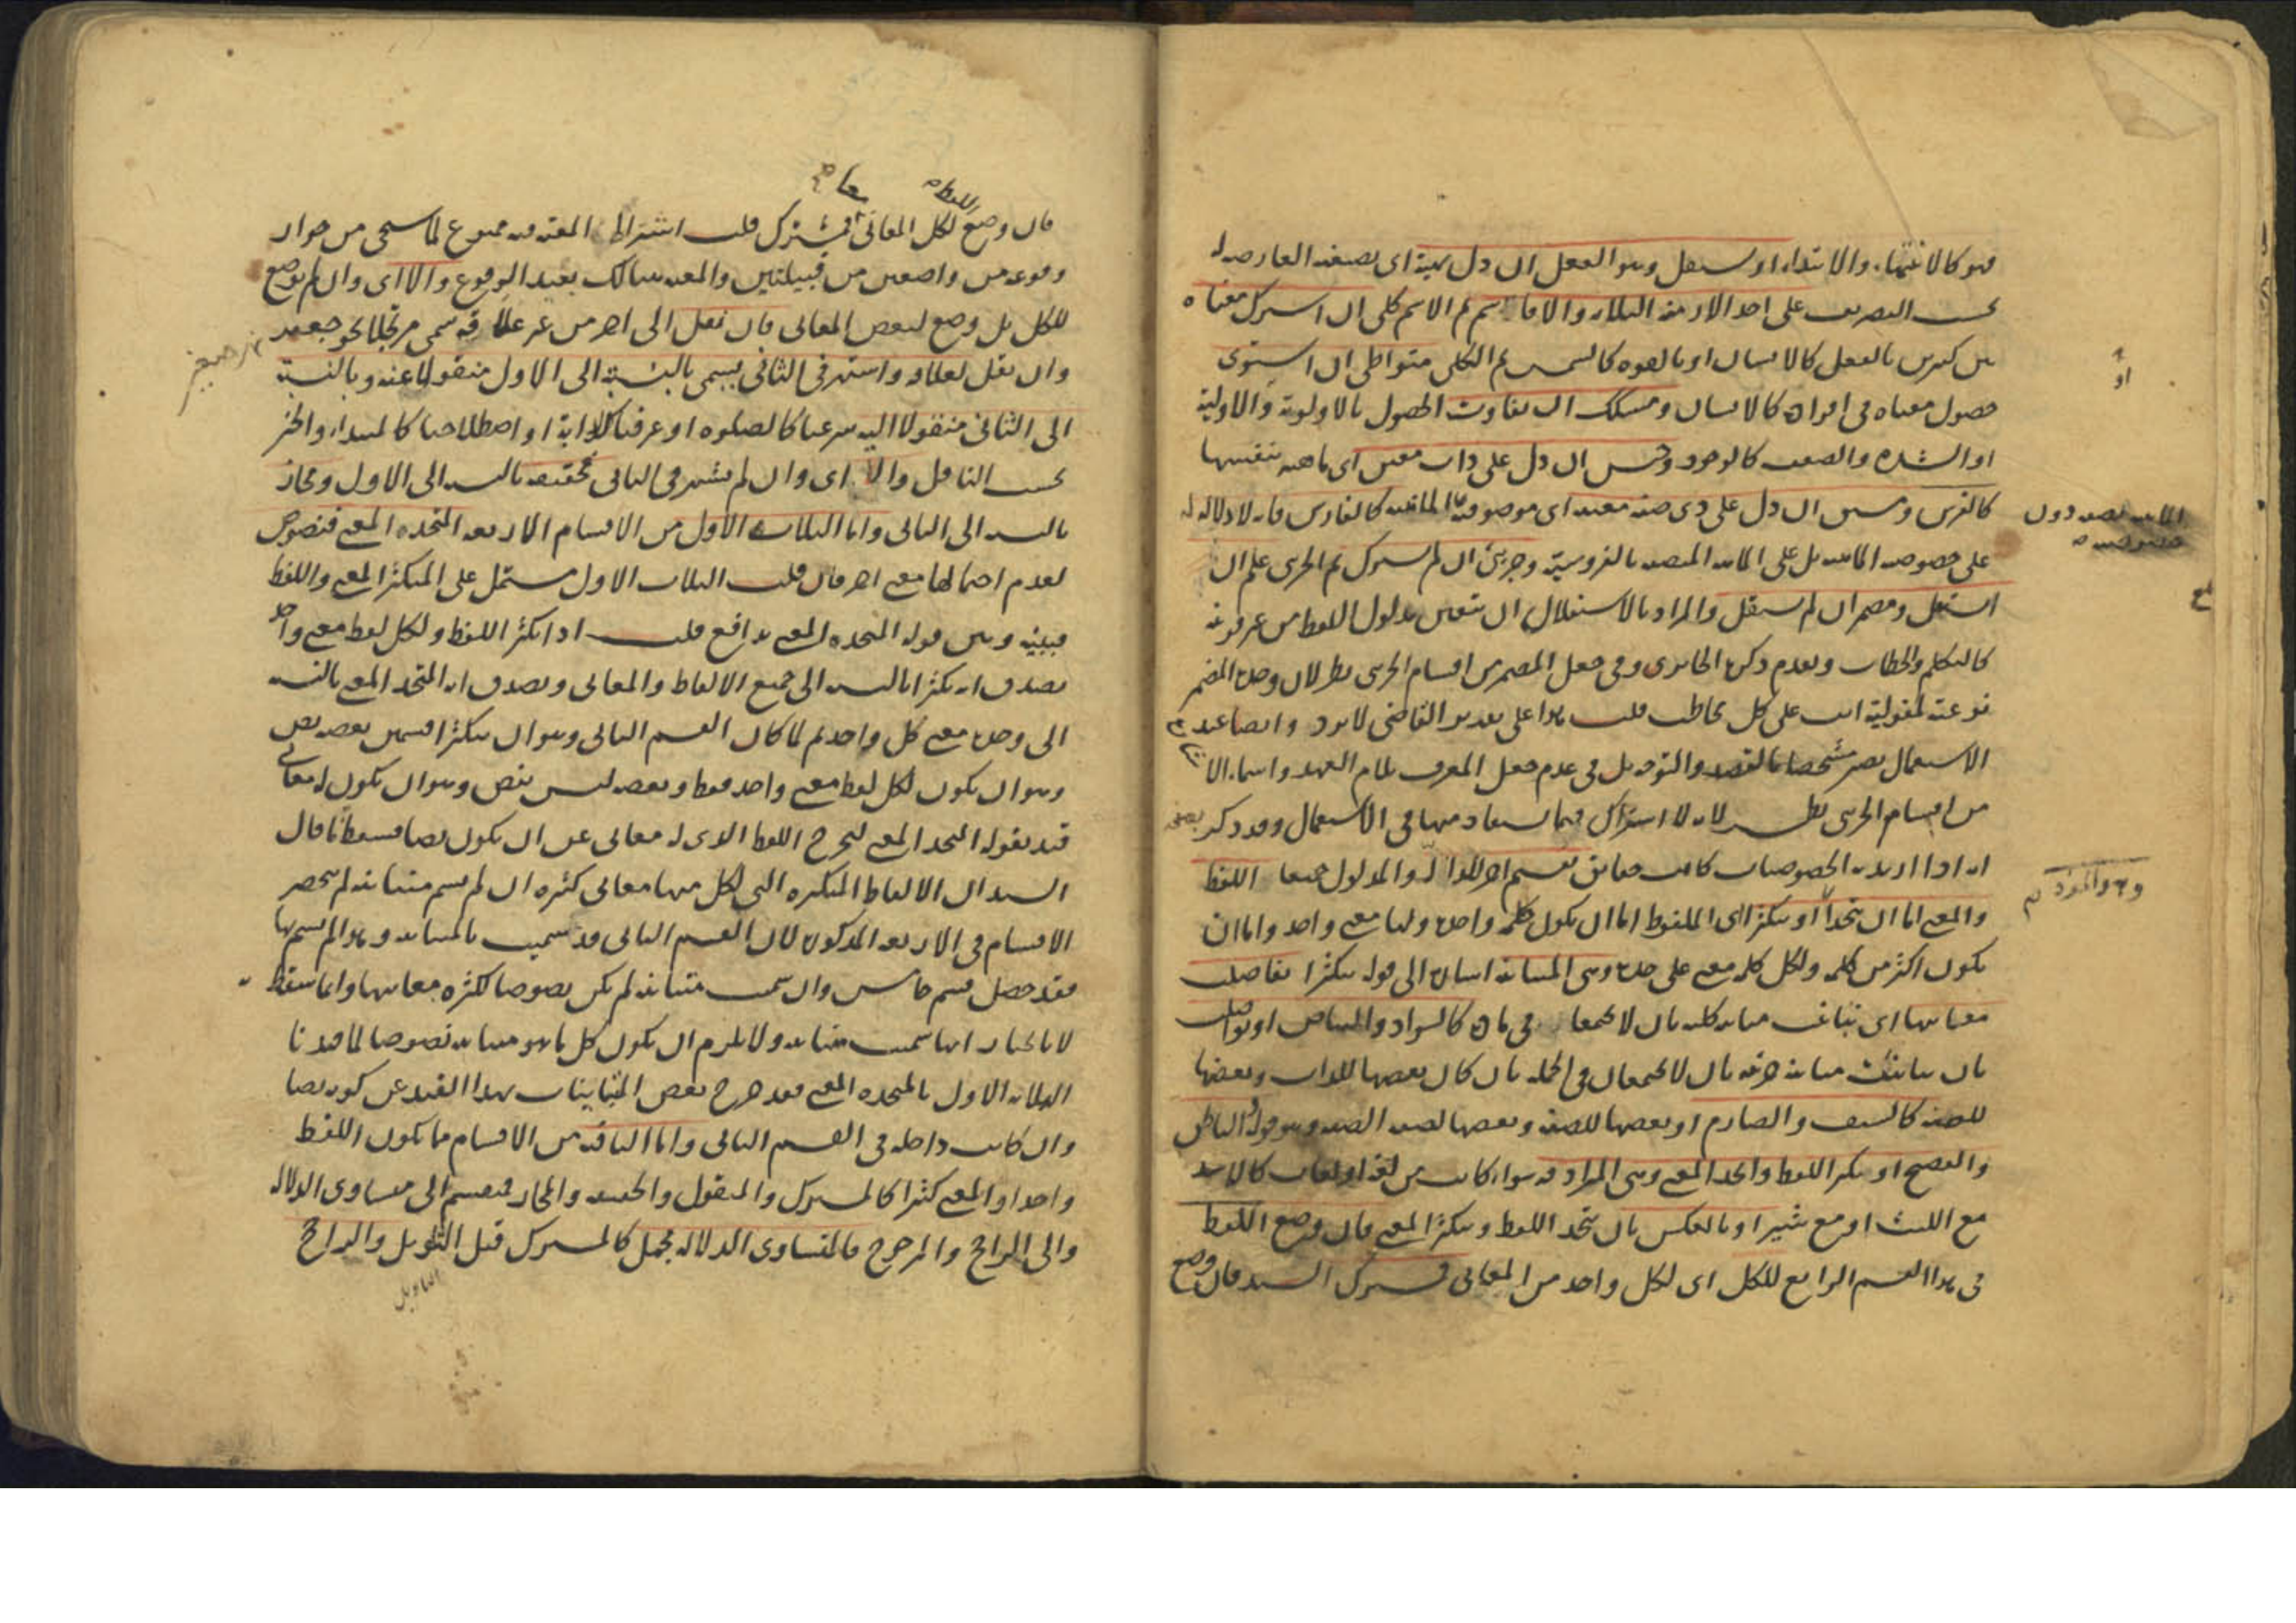 فهو كالانتهاء والابتداء او يستقل وهو الفعل ان دل بهيئة اى بصيغة العارضة له
بحسب التصريف على احد الازمنة الثلاثة والا فاسم ثم الاسم كلى ان اشترك معناه
بين كثيرين بالفعل كالانسان او بالقوة كالشمس ثم الكلى متواطئ ان استوى
حصول معناه فى افراده كالانسان ومشكك ان تفاوت الحصول بالاولوية والاولية
او الشدة والضعف كالوجود وجنس ان دل على ذات معين اى ماهية بنفسها
كالفرس ومشتق ان دل على ذى صفة معينة اى موصوفية الماهية كالفارس فانه لا دلالة له
على خصوصية الماهية بل على الماهية المتصفة بالفروسية وجزئى ان لم يشترك ثم الجزئى علم ان
استقل ومضمر ان لم يستقل والمراد بالاستقلال ان يتعين مدلول اللفظ من غير قرينة
كالتكلم والخطاب وتقدم ذكره الحاترى وفى جعل المضمر من اقسام الجزئى نظر لان وحدة المضمر
نوعية لمقولية انت على كل مخاطب قلت هذا على تقدير التقاضى لا يرد وايضا عند
الاستعمال يصير مشخصا بالقصد والتوجه بل فى عدم جعل المعرف بلام العهد واسماء الا
من اقسام الجزئى نظر لانه لا اشتراك فيما يستفاد منها فى الاستعمال وقد ذكر بعضهم
انه اذا اريد به الخصوصيات كانت حقايق تقسيم آخر للدال والمدلول جميعا اللفظ
والمعنى اما ان يتحدا او يتكثرا اى الملفوظ اما ان يكون كلمة واحدة ولها معنى واحد واما ان
يكون اكثر من كلمة ولكل كلمة معنى على حدة وهى المتباينة اشارة الى قوله يتكثرا تفاصلت
معانيها اى تباينت مباينة كلية بان لا يجتمعا فى مادة كالسواد والبياض او تواصلت
بان باينت مباينة جزئية بان لا يجتمعان فى الجملة بان كان بعضها للذات وبعضها
للصفة كالسيف والصارم او بعضها للصفة وبعضها لصفة الصفة وهو قوله والناطق
والفصيح او يتكثر اللفظ واتحد المعنى وهى المرادفة سواء كانت من لغة او لغات كالاسد
مع الليث او مع شير او بالعكس بان يتحد اللفظ ويتكثر المعنى فان وضع اللفظ
فى هذا القسم الرابع للكل اى لكل واحد من المعانى فمشترك السيد فان وضع
الماهية بصفة دون
خصوصية
فان وضع لكل المعانى فمشترك قلت اشتراك المعية فيه ممنوع لما سيجئ من جواز
وقوعه من واضعين من قبيلتين والمعية هنالك بعيد الوقوع والا اى وان لم يوضع
للكل بل وضع لبعض المعانى فان نقل الى آخر من غير علاقة سمى مرتجلا نحو جعفر
وان نقل لعلاقة واشتهر فى الثانى يسمى بالنسبة الى الاول منقولا عنه وبالنسبة
الى الثانى منقولا اليه شرعيا كالصلوة او عرفيا كالدابة او اصطلاحيا كالمبتداء والخبر
بحسب الناقل والا اى وان لم يشتهر فى الثانى فحقيقة بالنسبة الى الاول ومجاز
بالنسبة الى الثانى واما الثلاثة الاول من الاقسام الاربعة المتحدة المعنى فنصوص
لعدم احتمالها معنى آخر فان قلت الثلاث الاول مشتمل على المتكثر المعنى واللفظ
فبينه وبين قوله المتحدة المعنى تدافع قلت اذا تكثر اللفظ ولكل لفظ معنى واحد
يصدق انه تكثرا بالنسبة الى جميع الالفاظ والمعانى ويصدق انه المتحد المعنى بالنسبة
الى وحدة معنى كل واحد ثم لما كان القسم الثانى وهو ان يتكثرا قسمين بعضه نص
وهو ان يكون لكل لفظ معنى واحد فقط وبعضه ليس بنص وهو ان يكون له معانى
قيد بقوله المتحد المعنى ليخرج اللفظ الذى له معانى عن ان يكون نصا فسقط ما قال
السيد ان الالفاظ المتكثرة التى لكل منها معانى كثيرة ان لم يسم متباينة لم ينحصر
الاقسام فى الاربعة المذكورة لان القسم الثانى قد سميت بالمتباينة وهذا لم يسم بها
فقد حصل قسم خامس وان سميت متباينة لم يكن نصوصا لكثرة معانيها وانما سقط
لانا نختار انها سميت متباينة ولا يلزم ان يكون كل ما هو متباينة نصوصا لما قيدنا
الثلاثة الاول بالمتحدة المعنى فقد خرج بعض المتباينات بهذا القيد عن كونه نصا
وان كانت داخلة فى القسم الثانى واما الباقية من الاقسام ما يكون اللفظ
واحدا والمعنى كثيرا كالمشترك والمنقول والحقيقة والمجاز فينقسم الى متساوى الدلالة
والى الراجح والمرجوح فالمتساوى الدلالة مجمل كالمشترك قبل التأويل والراجح
التاويل